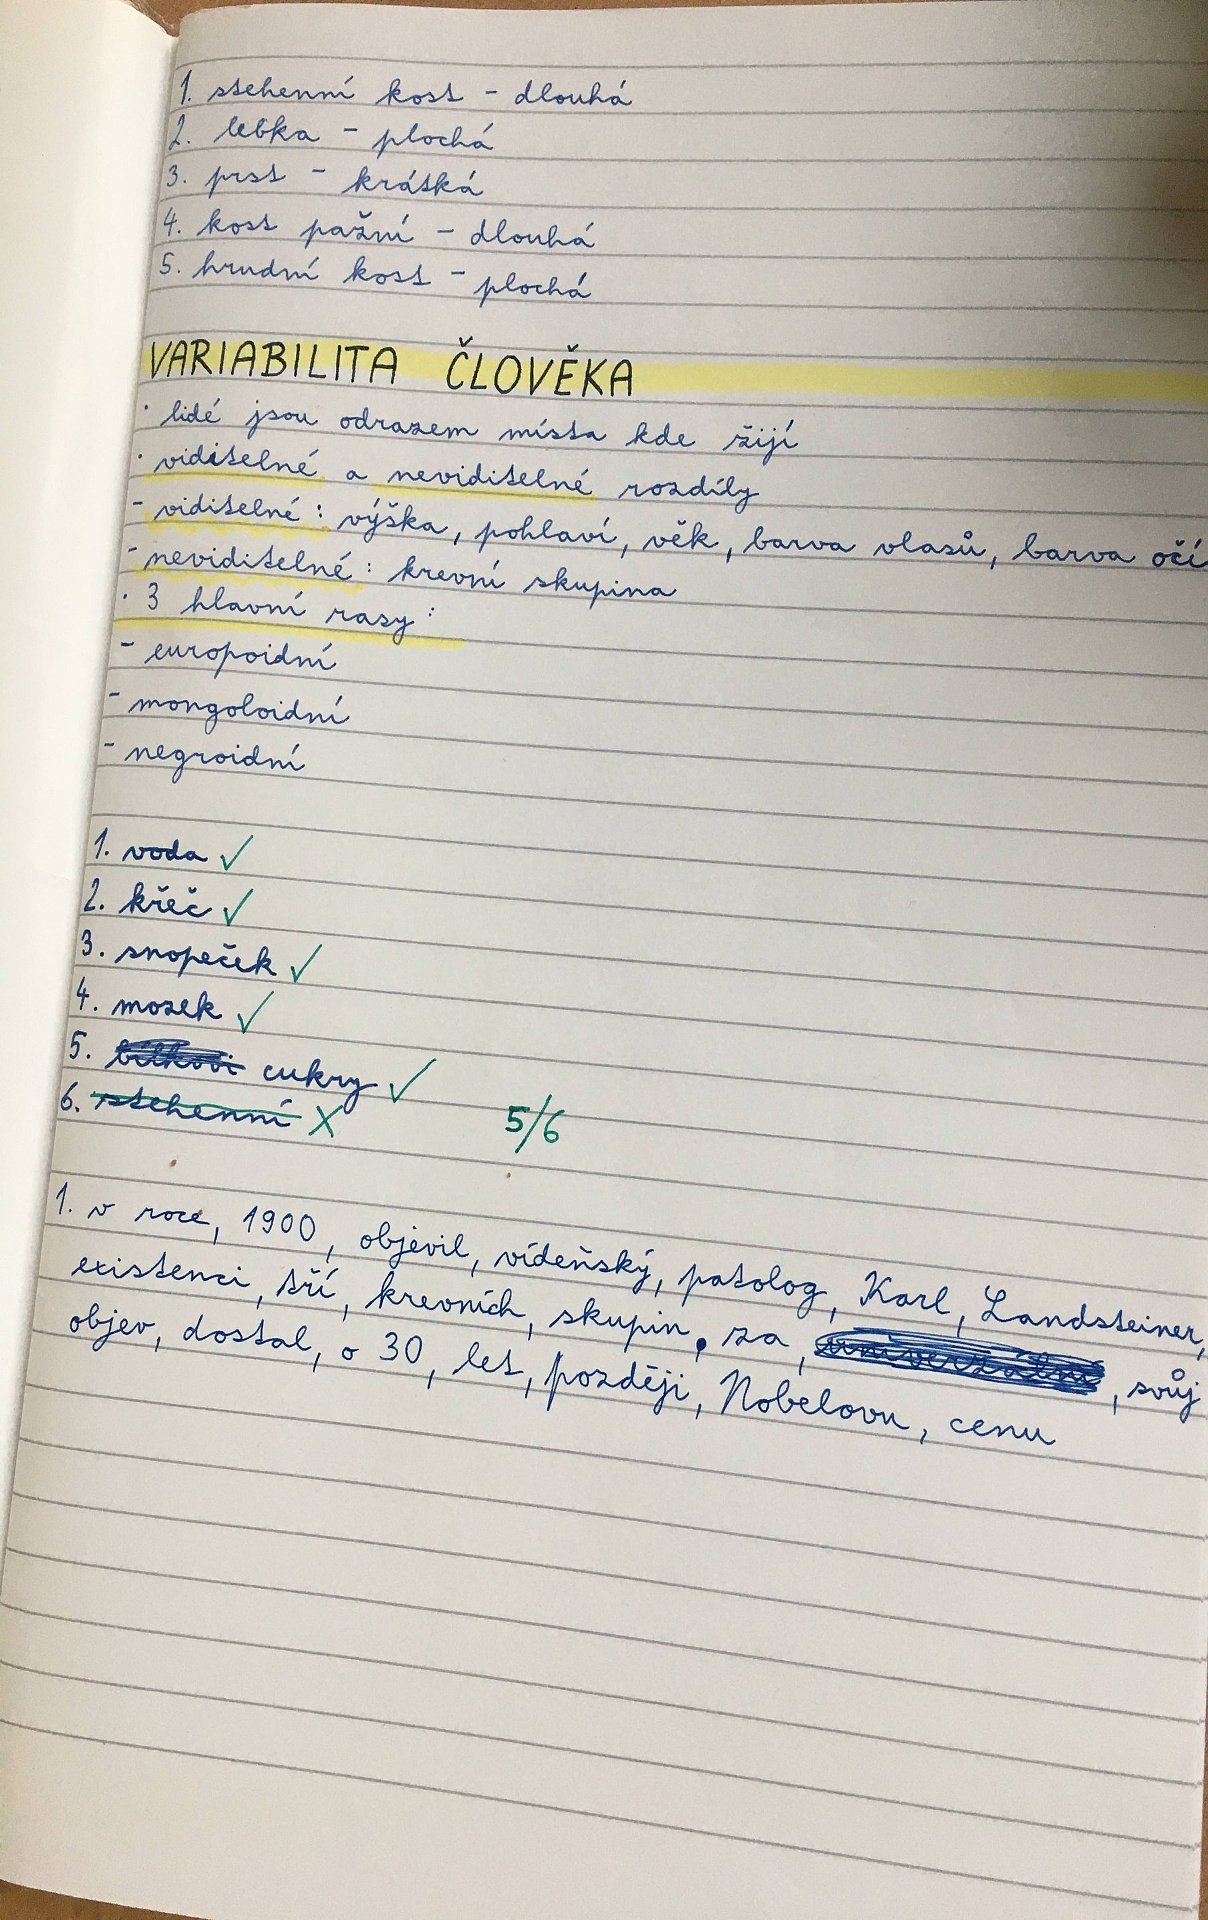 1. stehenní kost - dlouhá
2. lebka - plochá
3. prst - krátká
4. kost pažní - dlouhá
5. hrudní kost - plochá
VARIABILITA ČLOVĚKA
· lidé jsou odrazem místa kde žijí
· viditelné a neviditelné rozdíly
- viditelné: výška, pohlaví, věk, barva vlasů, barva očí
- neviditelné: krevní skupina
· 3 hlavní rasy:
- europoidní
- mongoloidní
- negroidní
1. voda ✓
2. křeč ✓
3. snopeček ✓
4. mozek ✓
5. bílkovi cukry ✓
6. stehenní X 5/6
1. v roce, 1900, objevil, vídeňský, patolog, Karl, Landsteiner,
existenci, tří, krevních, skupin, za, univerzální, svůj
objev, dostal, o 30, let, později, Nobelovu, cenu